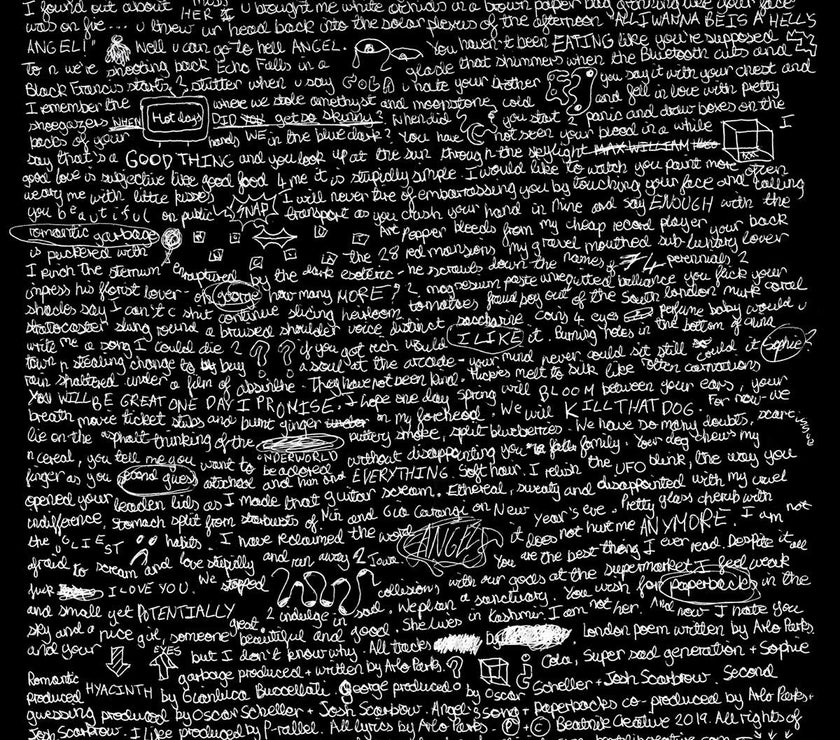 I found out about HER & u brought me white orchids in a brown paper bag
was on fire... u threw ur head back into the solar plexus of the afternoon "ALL I WANNA BE IS A HELL'S
ANGEL!" Well u can go to hell ANGEL. You haven't been EATING like you're supposed
To n we're shooting back Echo Falls in a glade that shimmers when the Bluetooth cuts and
Black Francis starts 2 stutter when u say COLA i hate your brother you say it with your chest and
I remember the where we stole amethyst and moonstone and fell in love with pretty
shoegazers WHEN Hot days DID YOU get so skinny? When did you start 2 panic and draw boxes on the
backs of your hands WE in the blue dark? You have not seen your blood in a while I
say that's a GOOD THING and you look up at the sun through the skylight MAX WILLIAM
good love is subjective like good food 4 me it is stupidly simple. I would like to watch you paint more often
weary me with little kisses I will never tire of embarrassing you by touching your face and calling
you beautiful on public SNAP transport as you crush your hand in mine and say ENOUGH with the
romantic garbage Art Pepper bleeds from my cheap record player, your back
is puckered with the 28 red mansions my gravel mouthed sub-luxury lover
I perch the sternum enraptured by the dark esoteric - he scrawls down the names of 74 perennials 2
impress his florist lover - oh george how many MORE? 2 magnesium paste unrequited brilliance you flick your
shades say I can't c shit continue slicing heirloom tomatoes fraud boy out of the South London murk coral
stratocaster slung round a bruised shoulder voice distinct saccharine coins 4 eyes perfume baby would u
write me a song I could die 2 ? ? if you got rich would I LIKE it. Burning holes in the bottom of
town n stealing change to buy a soul at the arcade - your mind never could sit still could it Sophie?
rain shattered under a film of absinthe. They have not been kind. melt to silk like often carnations
YOU WILL BE GREAT ONE DAY I PROMISE. I hope one day spring will BLOOM between your ears, your
breath move ticket stubs and burnt ginger on my forehead. We will KILL THAT DOG. For now we
lie on the asphalt thinking of the buttery smoke, split blueberries. We have so many doubts, scare
n cereal, you tell me you want to UNDERWORLD be adored without disappointing you family. Your dog chews my
finger as you second guess and him and EVERYTHING. Soft hour. I relish the UFO blink, the way you
opened your leaden lids as I made that guitar scream. Ethereal, sweaty and disappointed with my cruel
indifference, stomach split from starbursts of Nin and Gia Carangi on New Year's eve. Pretty glass cherub with
the UGLIEST habits. I have reclaimed the word ANGEL it does not hurt me ANYMORE. I am not
afraid to scream and love stupidly and run away 2 Java. You are the best thing I ever read. Despite it all
fuck I LOVE YOU. We stopped collisions with our goals at the supermarket I feel weak
and small yet POTENTIALLY great. 2 indulge in sad. We plan a sanctuary. You wish for paperbacks in the
sky and a nice girl, someone beautiful and good. She lives in Kashmir. I am not her. And now I hate you
and your EYES but I don't know why. All tracks by London poem written by Arlo Parks
Romantic garbage produced + written by Arlo Parks. ? Cola, super sad generation + Sophie
produced HYACINTH by Gianluca Buccellati. George produced by Oscar Scheller + Josh Scarbrow. Second
guessing produced by Oscar Scheller + Josh Scarbrow. Angel's song + Paperbacks co-produced by Arlo Parks +
Josh Scarbrow. I like produced by P-rallel. All lyrics by Arlo Parks. ℗ + © Beatnik Creative 2019. All rights of